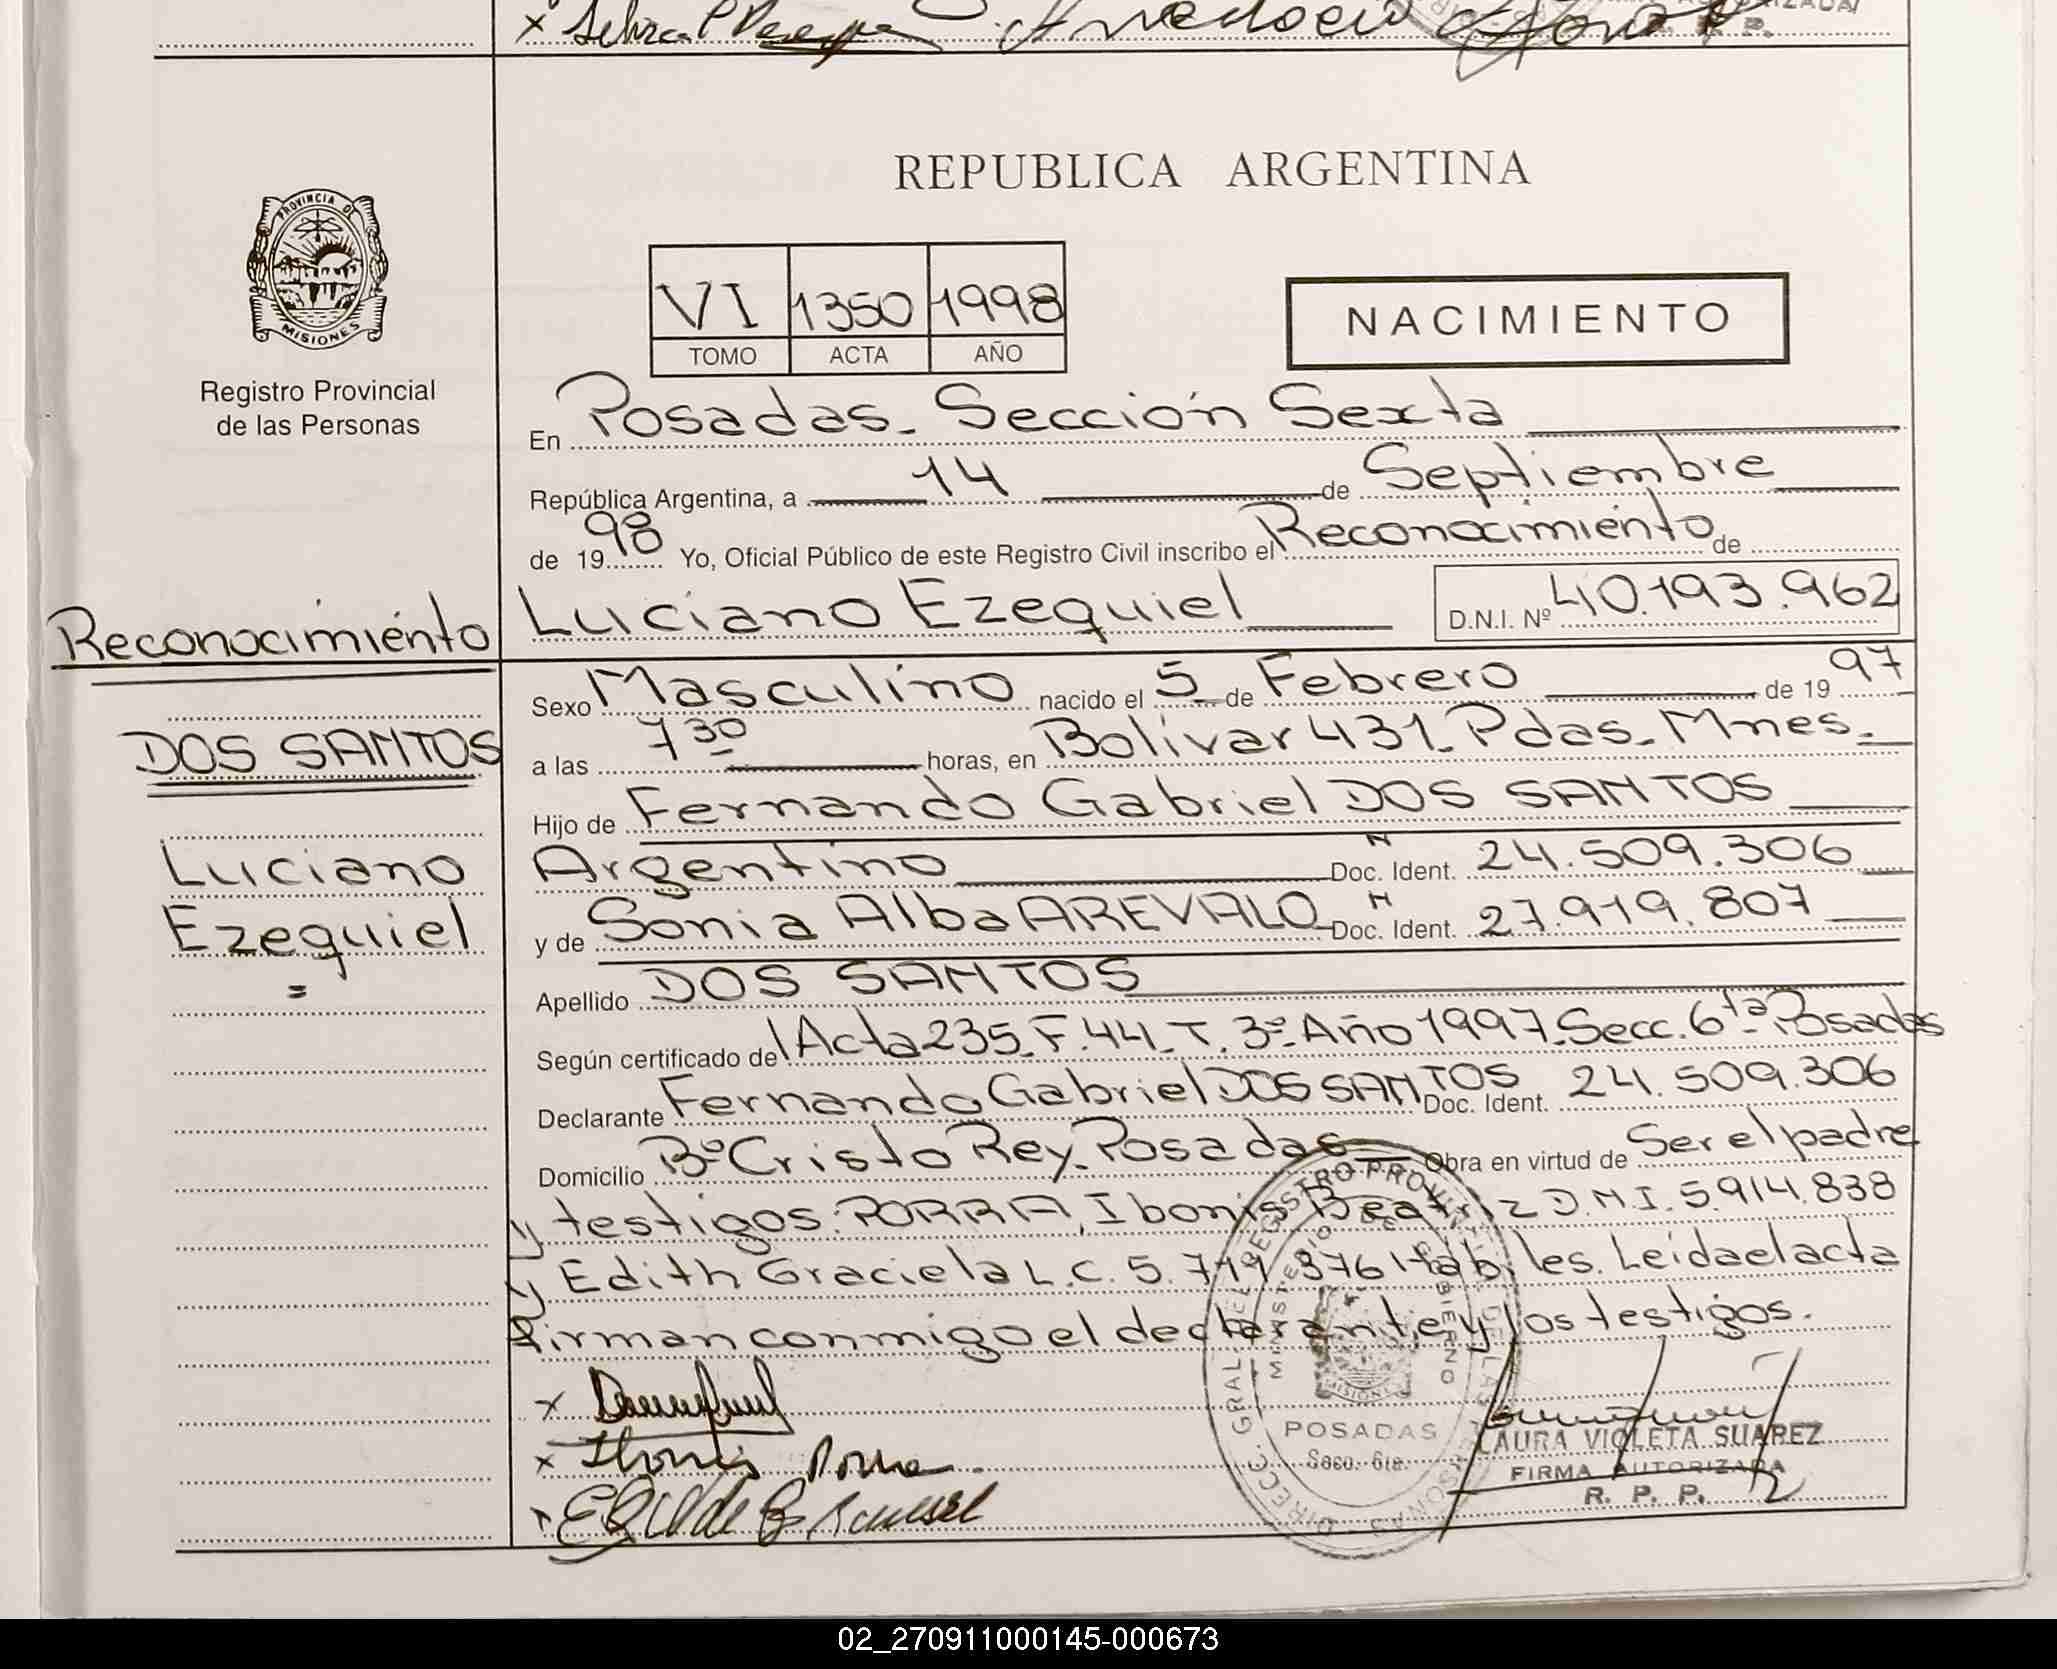 REPUBLICA ARGENTINA
PROVINCIA DE
MISIONES
Registro Provincial
de las Personas
VI 1350 1998
TOMO ACTA AÑO
NACIMIENTO
En Posadas - Sección Sexta
República Argentina, a 14 de Septiembre
de 1998 Yo, Oficial Público de este Registro Civil inscribo el Reconocimiento de
Luciano Ezequiel D.N.I. Nº 40.193.962
Reconocimiento
DOS SANTOS
Luciano
Ezequiel
=
Sexo Masculino nacido el 5 de Febrero de 1997
a las 7 30 horas, en Bolívar 431 - Pdas - Mnes.
Hijo de Fernando Gabriel DOS SANTOS
Argentino Doc. N Ident. 24.509.306
y de Sonia Alba AREVALO Doc. N Ident. 27.919.807
Apellido DOS SANTOS
Según certificado de Acta 235 - F. 44 - T. 3º - Año 1997 - Secc. 6ta Posadas
Declarante Fernando Gabriel DOS SANTOS Doc. Ident. 24.509.306
Domicilio Bº Cristo Rey - Posadas Obra en virtud de Ser el padre
y testigos: PORRA, Ibonis Beatriz D.N.I. 5.914.838
y Edith Graciela L.C. 5.719.376 Hábiles. Leída el acta
firman conmigo el declarante y los testigos.
x
x Ibonis Porra
DIRECC. GRAL. DEL REGISTRO PROVINCIAL DE LAS PERSONAS
MINISTERIO DE GOBIERNO
MISIONES
POSADAS
Secc. 6ta.
LAURA VIOLETA SUAREZ
FIRMA AUTORIZADA
R. P. P.
02_270911000145-000673